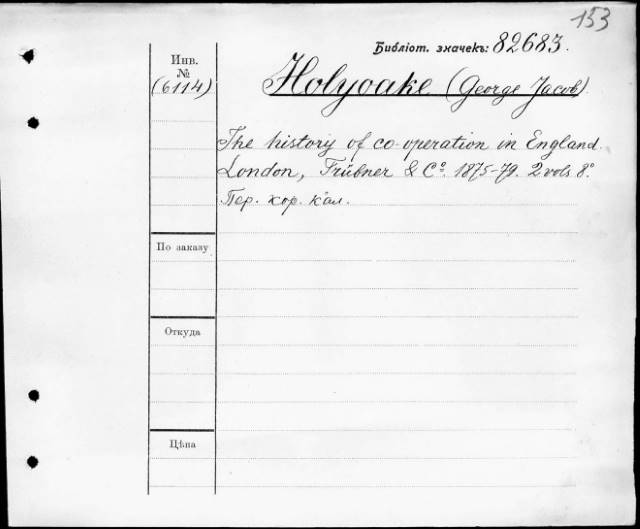 153
Библіот. значекъ: 82683.
Инв.
№
(6114)
Holyoake (George Jacob)
The history of co-operation in England.
London, Trübner & Cº. 1875-79. 2 vols 8º
Пер. хор. кал.
По заказу
Откуда
Цѣна